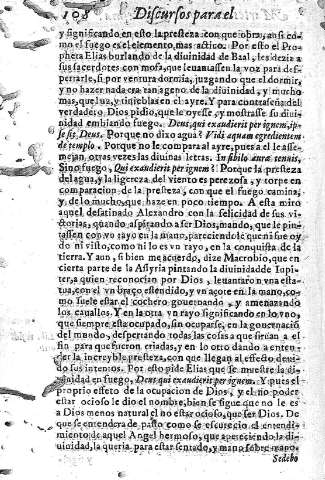 108 Discursos para el
y significando en esto la presteza con que obra, ansi co-
mo el fuego es el elemento, mas actico. Por esto el Pro-
pheta Elias burlando de la diuinidad de Baal, les dezia a
sus sacerdotes con mofa, que leuantassen la voz para des-
pertarle, si por ventura dormia, juzgando que el dormir,
y no hazer nada era tan ageno de la diuinidad, y mucho
mas, que luz, y tinieblas en el ayre. Y para contraseña del
verdadero Dios pidio, que le oyesse, y mostrasse su diui-
nidad embiando fuego. Deus, qui exaudierit per ignem, ip-
se sit Deus. Porque no dixo agua? Vidi aquam egredientem
de templo. Porque no le compara al ayre, pues a el le asse-
mejan otras vezes las diuinas letras. In sibilo auræ tenuis.
Sino fuego, Qui exaudierit per ignem? Porque la presteza
del agua, y la ligereza del viento es perezosa, y torpe en
comparacion de la presteza, con que el fuego camina,
y de lo mucho, que haze en poco tiempo. A esta miro
aquel desatinado Alexandro con la felicidad de sus vi-
ctorias, quando aspirando a ser Dios, mando, que le pin-
tassen con vn rayo en la mano, pareciendole que ni fue oy-
do ni visto, como ni lo es vn rayo, en la conquista de la
tierra. Y aun, si bien me acuerdo, dize Macrobio, que en
cierta parte de la Assyria pintando la diuinidad de Iupi-
ter, a quien reconocian por Dios, leuantaron vna esta-
tua, con el vn braço estendido, y vn açote en la mano, co-
mo suele estar el cochero gouernando, y amenazando
los cauallos. Y en la otra vn rayo significando en lo vno,
que siempre esta ocupado, sin ocuparse, en la gouernacion
del mundo, despertando todas las cosas a que siruan a el
fin para que fueron criadas, y en lo otro dando a enten-
der la increyble presteza, con que llegan al effecto deui-
do sus intentos. Por esto pide Elias que se muestre la di-
uinidad en fuego, Deus qui exaudierit per ignem. Y pues el
proprio effeto de la ocupacion de Dios, y el no poder
estar ocioso le dio el nombre, bien se sigue que no le es
a Dios menos natural el no estar ocioso, que ser Dios. De
que se entendera de passo como se escurecio el entendi-
miento de aquel Angel hermoso, que apeteciendo la di-
uinidad, la queria para estar sentado, y mano sobre mano.
Sedebo